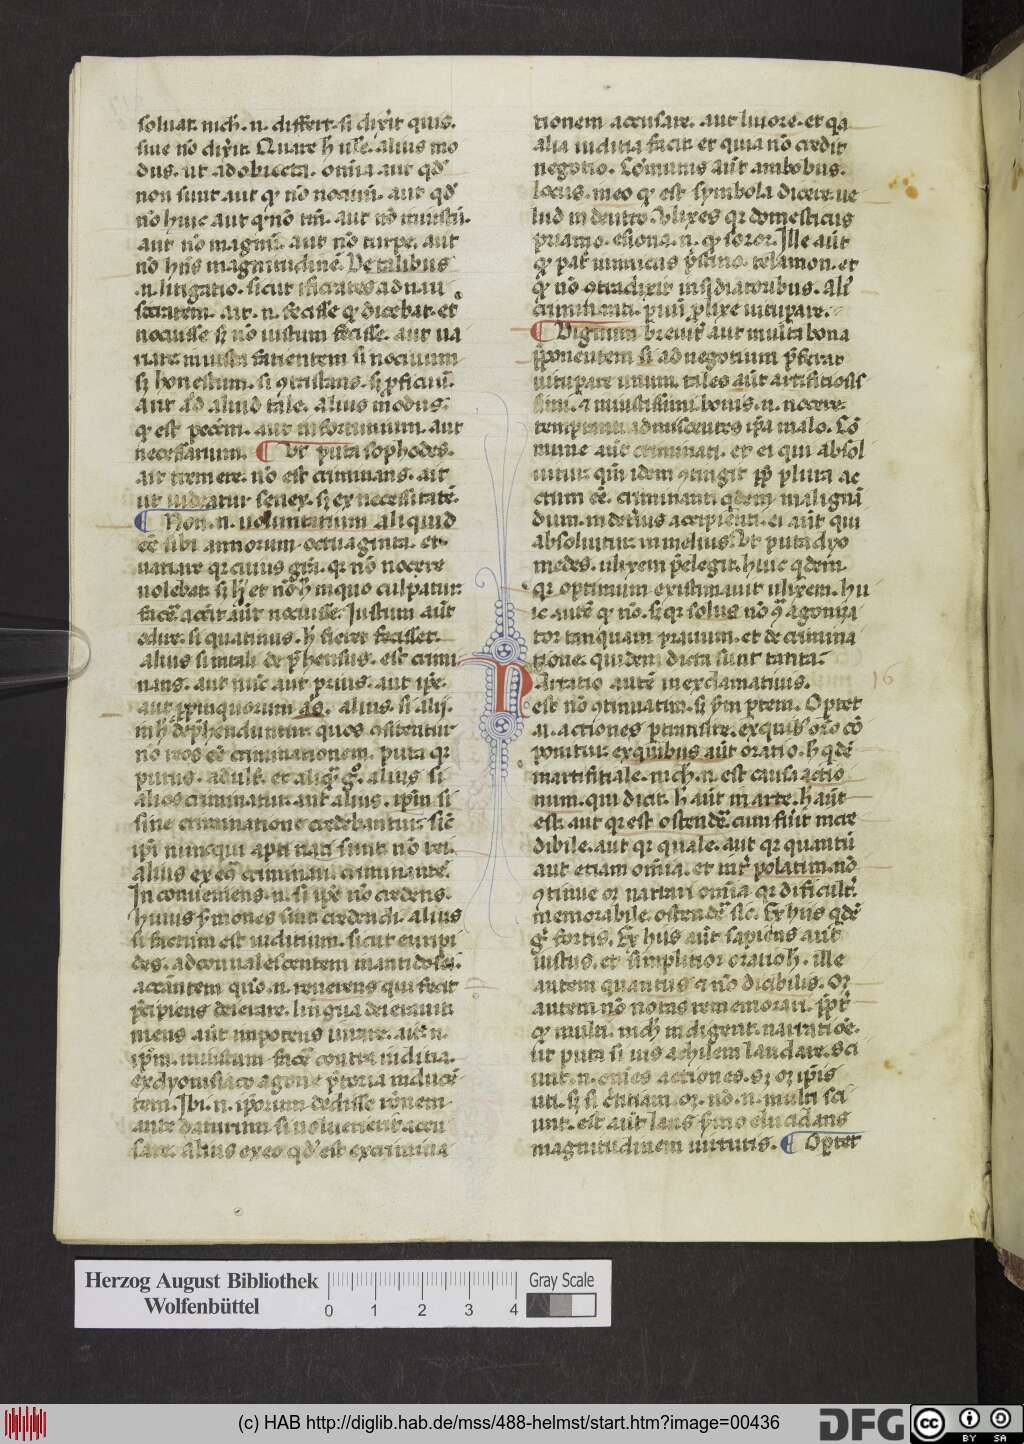 soluat. nich̄. n. differt. si dixe̓it quis.
siue nō dixe̓it. Quare h̄ usꝰe. alius mo
dus. ut ad obiecta. om̄ia aut qd̓
non sunt aut qͥ nō nociuū. aut qd̓
nō huic aut qͥ nō tm̄. aut nō iniustū.
aut nō magnū. aut nō turpe. aut
nō hn̄s magnitudinē. De talibus
.n. litigatio. sicut ificrates ad nau
secratem. ait. n. fecisse qͥ dicebat. et
nocuisse sꝫ nō iustum fecisse. aut ua
riare iniusta facientem si nociuum
sꝫ honestum. si ꝯtristans. sꝫ ꝓficuū.
aut ad aliud tale. alius modus.
qͥ est pec̄cm. aut infortunium. aut
necessarium. Ut puta sophodes.
ait tremere. nō est criminans. ait
ut uideatur senex. sꝫ ex necessitate.
Non. n. uoluntarium aliquid
eē sibi annorum octuaginta. et
uariare qͥ cuius gr̄a. qͥ nō nocere
uolebat. sꝫ h̄ et nō
facē accit aūt nocuisse. Iustum aūt
odire. si quatinus. h̄ fieret fecisset.
alius si intali dep̄hensus. est crimi
nans. aut nūc aut prius. aut ip̄e.
aut ꝓpinquorum alius. si alij.
in h̄ dep̄henduntur. quos ꝯfitentur
nō reos eē criminationem. puta qͥ
purus. adult. et aliqͥ gͦ. alius si
alios criminatur. aut alius. ip̄m si
sine criminatione credebantur. sic̄
ip̄i nuncqui apti nati sunt. nō rei.
alius ex eͦ criminari criminante.
Inconueniens. n. si ip̄e nō credens.
huius s̓mones sint credendi. alius
si factum est iuditium. sicut euripi
des. ad conualescentem in antidosei.
accusantem quō. n. reuerens qui fecit
p̄cipiens deierare. lingua deierauit
mens aūt impotens iurare. ait. n.
ip̄m. iniustum facē contra iuditia.
ex dyonisiaco agone p̄toria inducē
tem. Ibi. n. ip̄orum dedisse r̄onem
aut daturum si uoluerit accu
sare. Alius ex eo qd̓ est ex crimina
tionem accusare. aut liuore. et qͣ
alia iuditia facit. et quia nō credit
negotio. Cōmunis aūt ambobus.
locus. meo qͥ est symbola dicere. ue
lud in deutro. Vlixes qͥ domesticus
priamo. esiona. n. qͥ soror. Ille aūt
qͥ pat̓ inimicus p̄stino. telamon. et
qͥ nō ꝯtradixit insidiatoribus. Ali
criminanti. p̄iui ꝓlixe uitupare.
Dignum breuit̓ aut multa bona
ꝓponentem si ad negotium p̄ferat
uitupare unum. tales aūt artificiosis
simi. ⁊ iniustissimi bonis. n. nocere.
temptant admiscentes ip̄a malo. Cō
mune aūt criminati. et ei qui absol
uitur. qm̄ idem ꝯtingit ꝓp̄ plura ac
ctum eē. criminanti qdem malignā
dum. in det̓ius accipienti. ei aūt qui
absoluitur in melius. Ut puta dyo
medes. ulixem p̄elegit. huic qdem
qͥ optimum existimauit ulixem. hu
ic autē qͥ nō. sꝫ qͥ solus nō ꝯ̓ agoniza
tor tanquam prauum. et de crimina
tione. quidem dicta sunt tanta.
Narratio autē in exclamatiuis.
est nō ꝯtinuatim. sꝫ s̓m p̄tem. Oꝑtet
.n. actiones ꝑtransire. ex quibꝰ orō cō
ponitur. ex quibus aūt oratio. h̄ qdē
inartifitiale. nich̄. n. est causa actio
num. qui dicit. h̄ aūt in arte. h̄ aūt
est. aut qͥ est ostendē. cum fiūt incre
dibile. aut qͥ quale. aut qͥ quantū
aut etiam om̄ia. et int̓polatim. nō
ꝯtinue oꝫ narrari om̄ia qͥ dificult̓.
memorabile. ostendē sic. Ex hiis qdē
gͦ fortis. Ex hiis aūt sapiens aūt
iustus. et simplitior oratioħ. ille
autem quantus ⁊ nō dicibilis. Oꝫ
autem nō notas rememorari. ꝓpt̓
qͥ multi. nich̄ indigent. narratiōe.
sit puta si uis achilem laudare. Sci
unt. n. om̄es actiones. sꝫ oꝫ ip̄is
uti. sꝫ si c̓titiam. oꝫ. nō. n. multi sci
unt. est aūt laus s̓mo elucidans
magnitudinem uirtutis. Oꝑtet
16
Herzog August Bibliothek
Wolfenbüttel
0 1 2 3 4
Gray Scale
(c) HAB http://diglib.hab.de/mss/488-helmst/start.htm?image=00436
DFG
cc BY SA